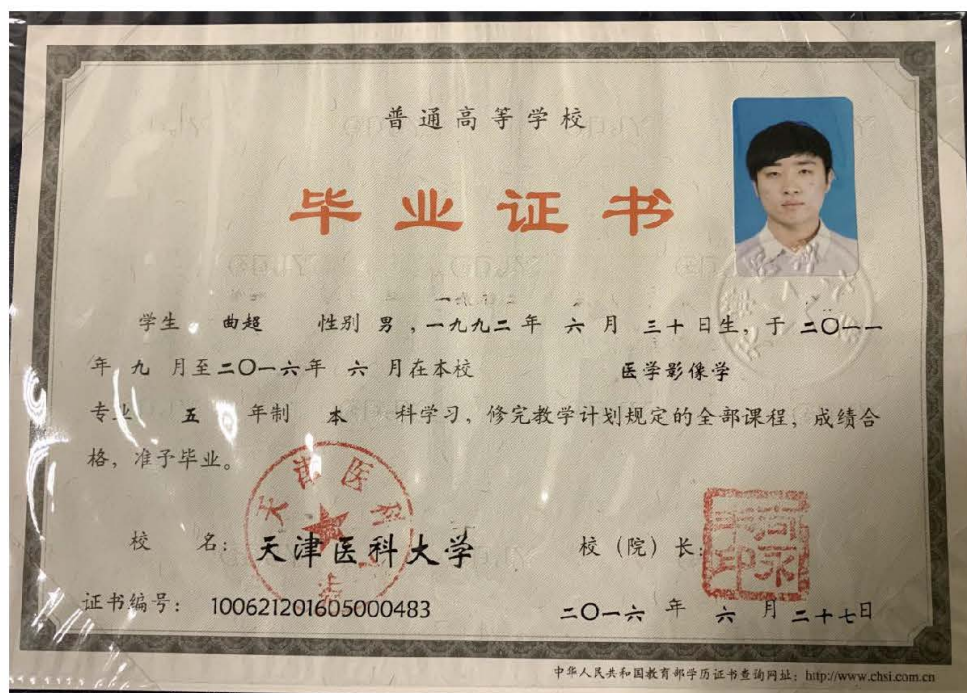 普通高等学校
毕业证书
学生 曲超 性别 男，一九九二年 六 月 三十日生，于 二〇一一
年 九 月至二〇一六年 六 月在本校 医学影像学
专业 五 年制 本 科学习，修完教学计划规定的全部课程，成绩合
格，准予毕业。
校 名：天津医科大学 校（院）长：
证书编号：100621201605000483 二〇一六 年 六 月 二十七日
中华人民共和国教育部学历证书查询网址：http://www.chsi.com.cn